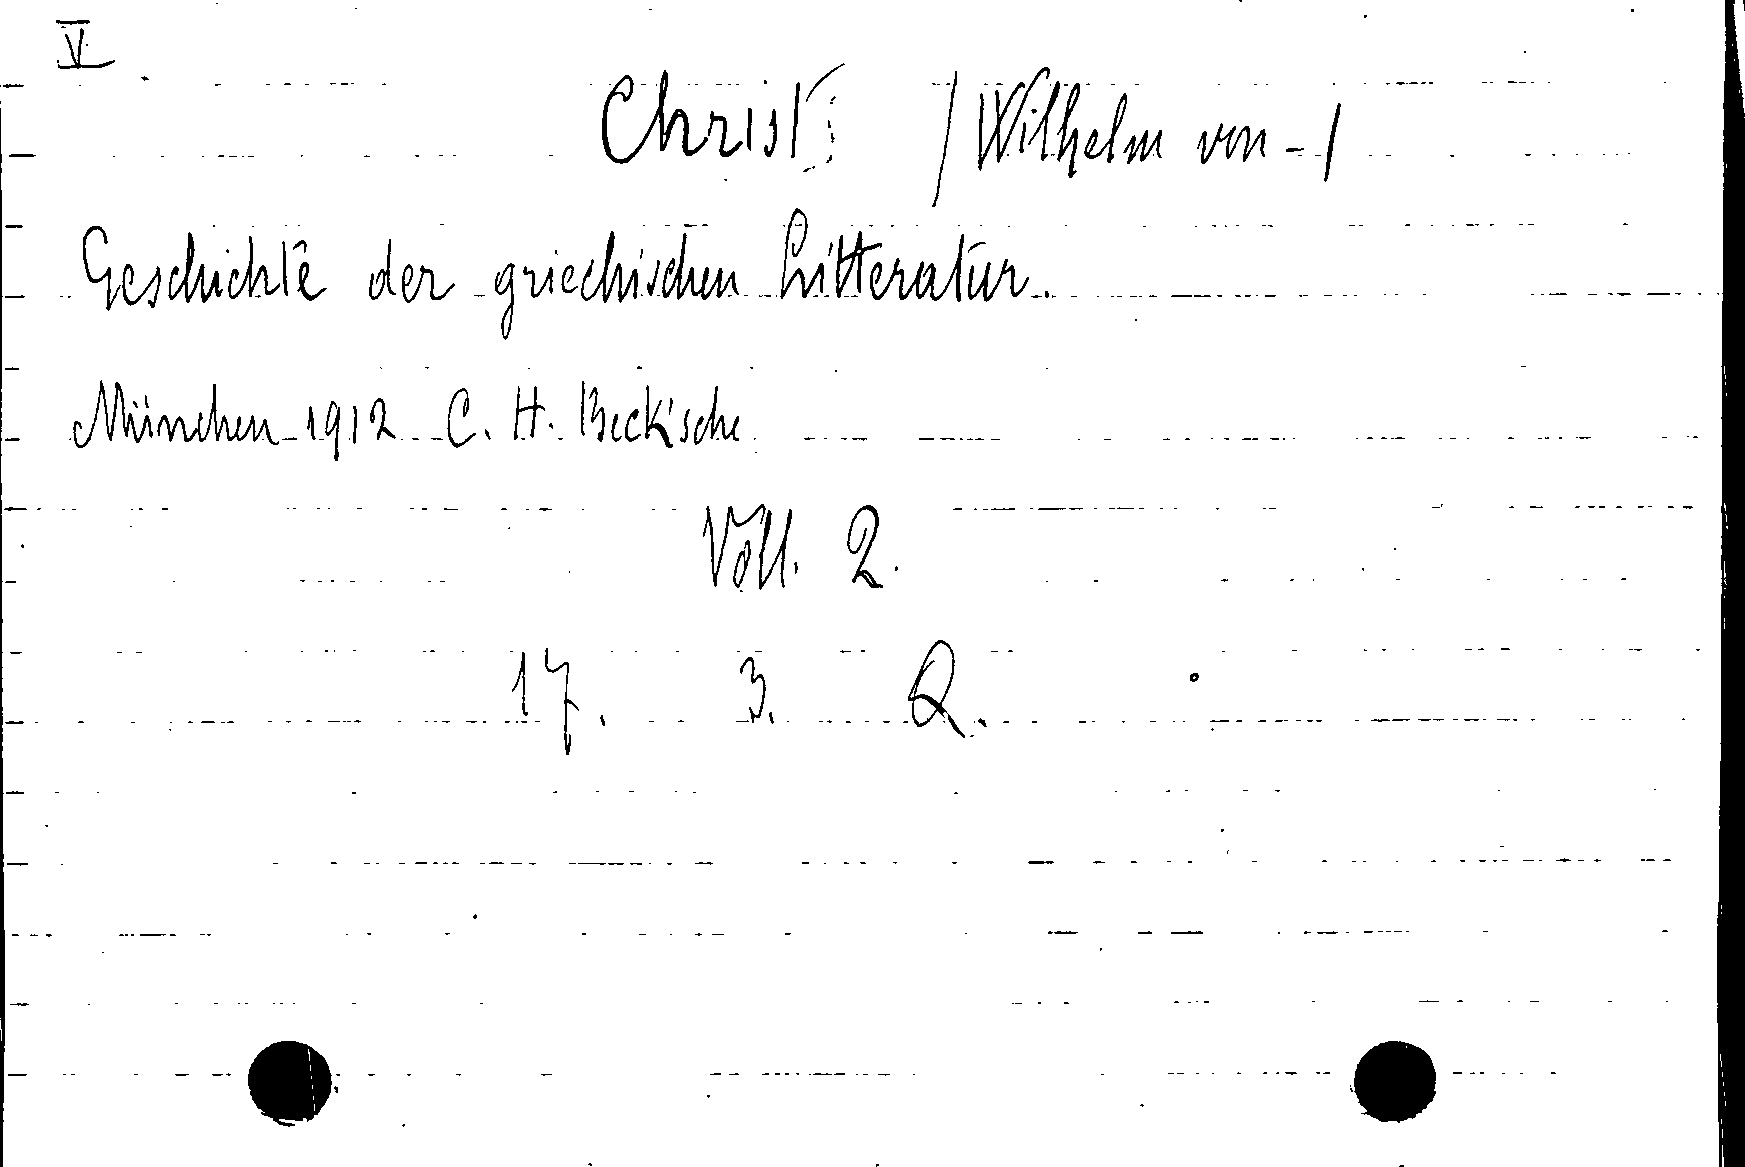 V
Christ / Wilhelm von - /
Geschichte der griechischen Litteratur.
München 1912 C. H. Beck'sche
Voll. 2.
17. 3. Q.